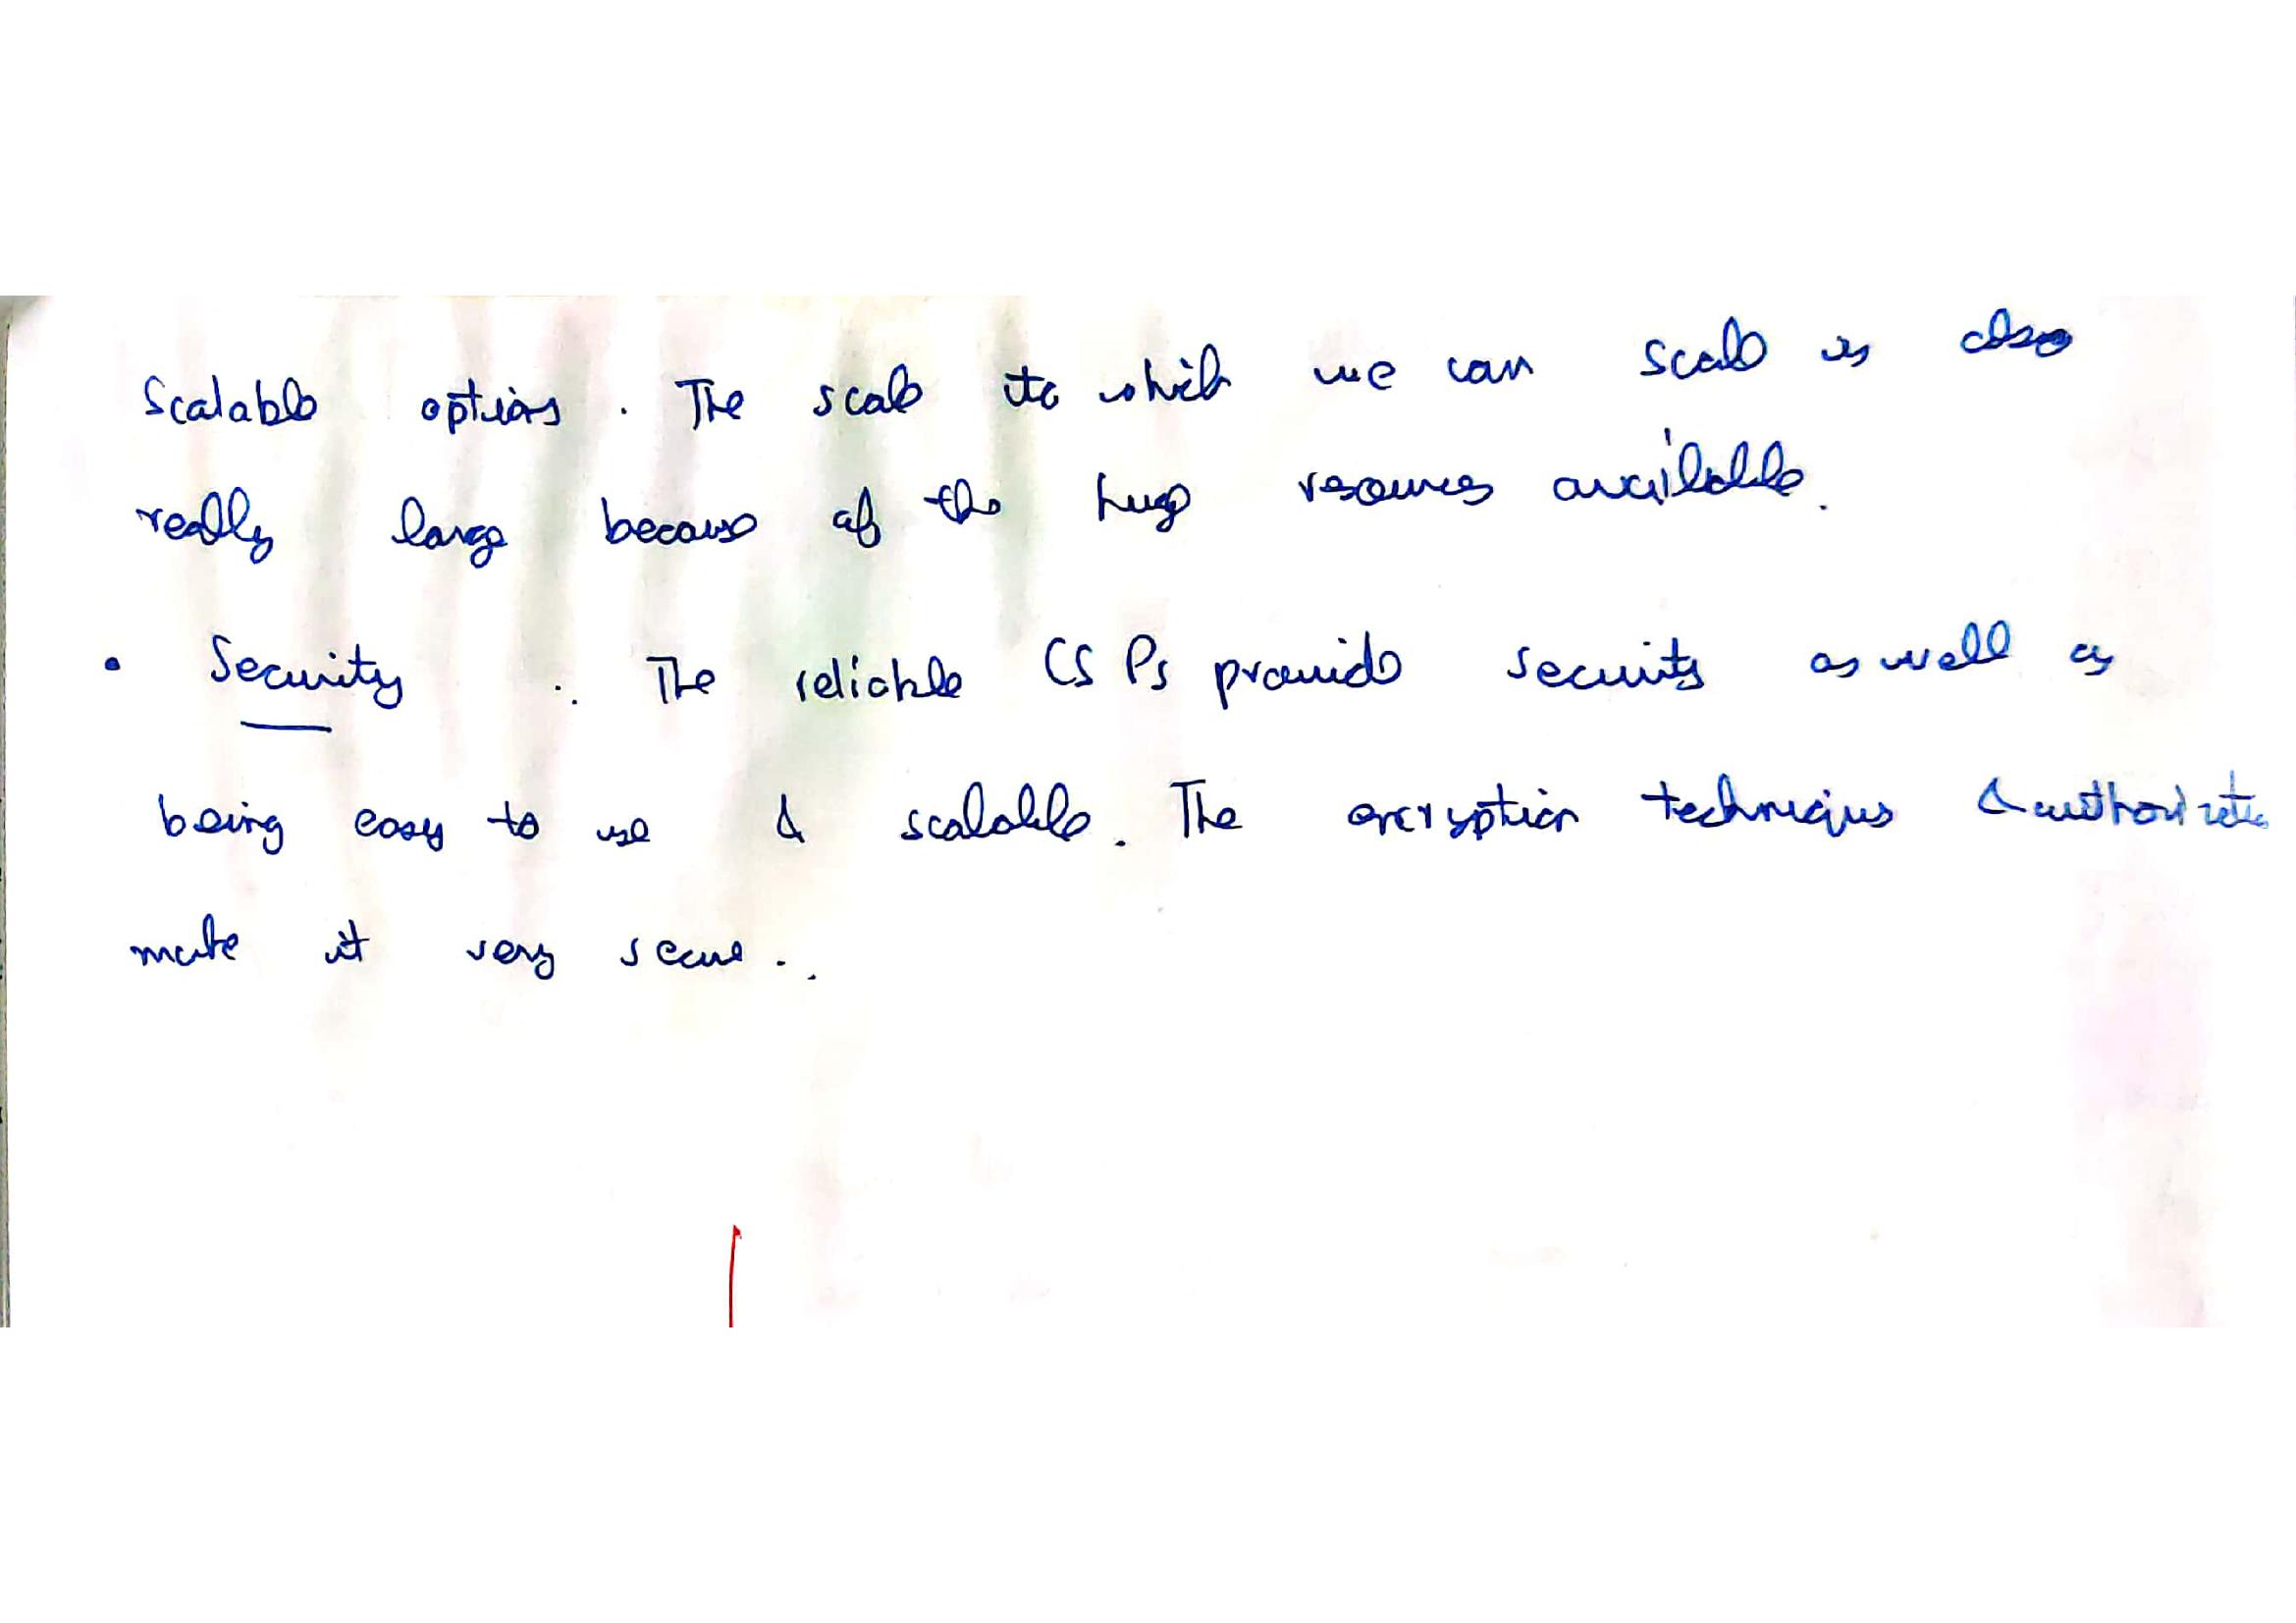 Scalable options. The scale to which we can scale is also
really large because of the huge resources available.
• Security : The reliable CSPs provide security as well as
being easy to use & scalable. The encryption techniques & authorization
make it very secure..